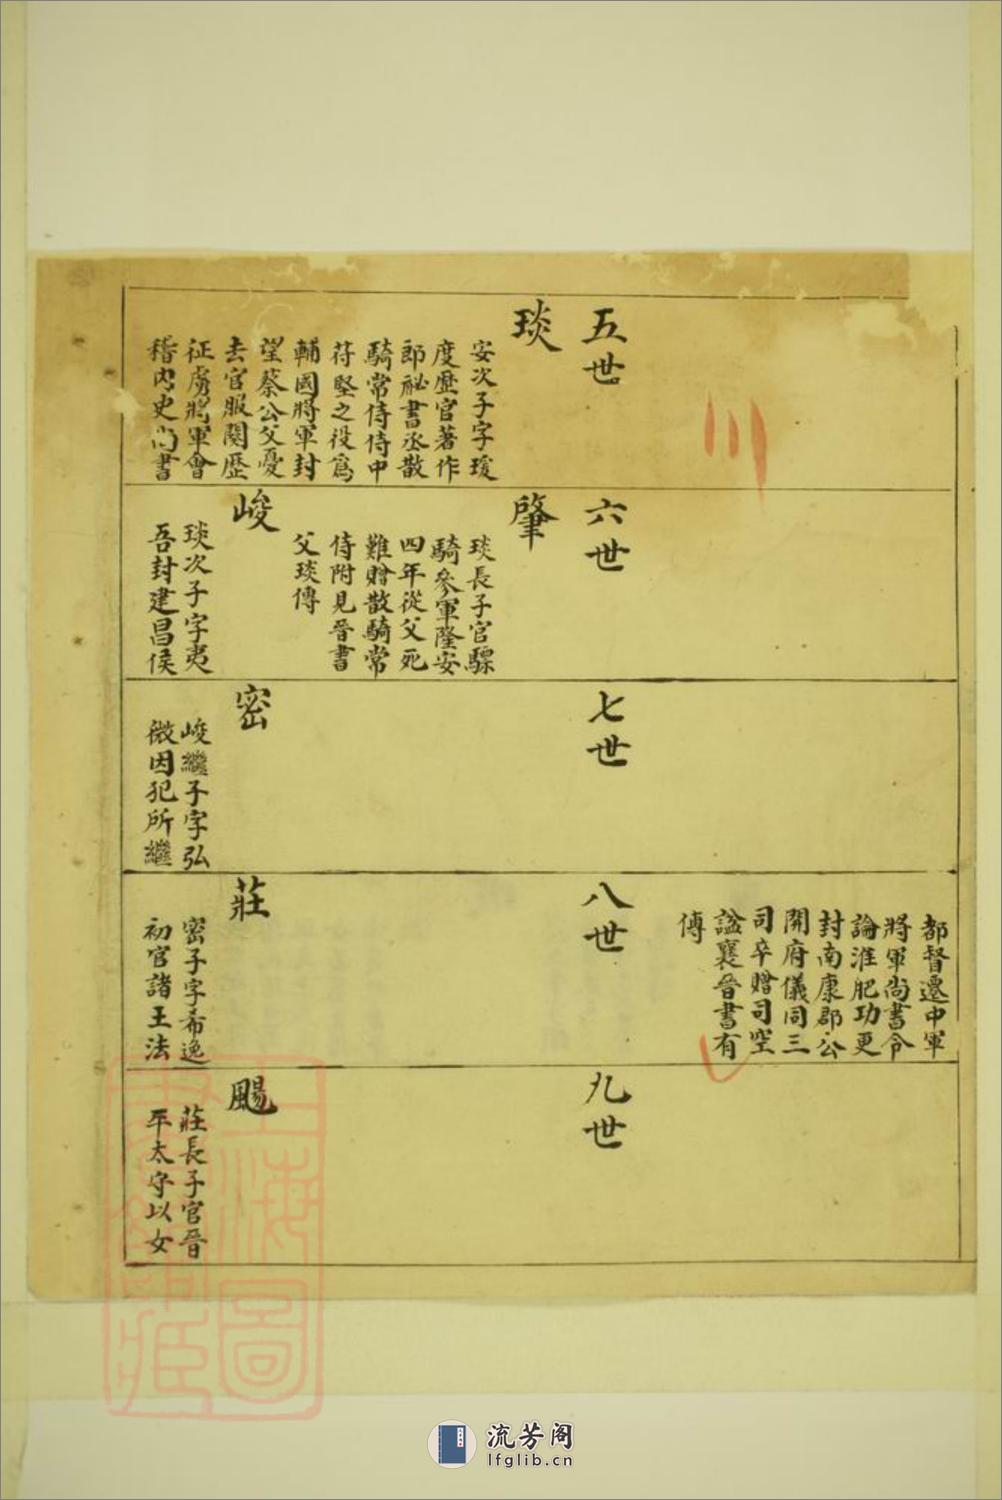 都督遷中軍
將軍尚書令
論淮肥功更
封南康郡公
開府儀同三
司卒贈司空
諡襄晉書有
傳
五世
琰
安次子字瑗
度歷官著作
郎祕書丞散
騎常侍侍中
苻堅之役爲
輔國將軍封
望蔡公父憂
去官服闋歷
征虜將軍會
稽內史尚書
六世
肇
琰長子官驃
騎參軍隆安
四年從父死
難贈散騎常
侍附見晉書
父琰傳
峻
琰次子字夷
吾封建昌侯
七世
密
峻繼子字弘
微因犯所繼
八世
莊
密子字希逸
初官諸王法
九世
颺
莊長子官晉
平太守以女
上海圖
書館藏
流芳阁
lfglib.cn